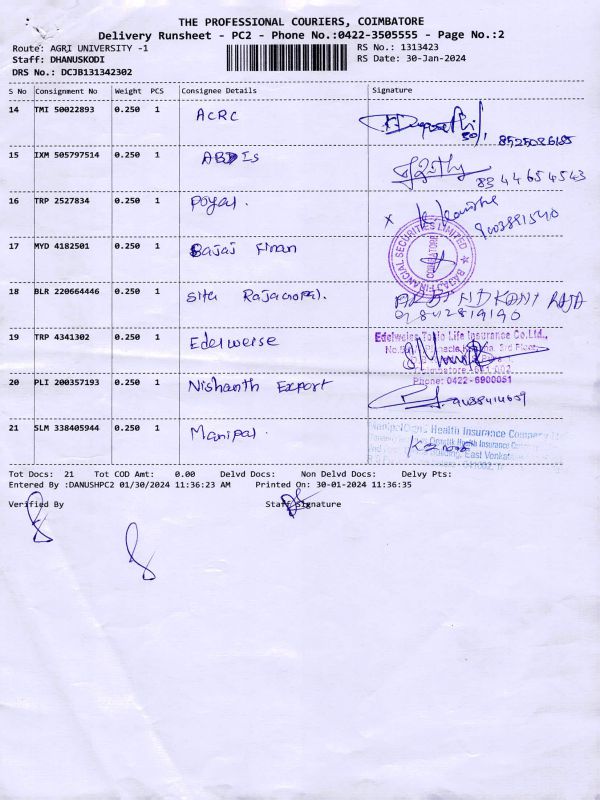 THE PROFESSIONAL COURIERS, COIMBATORE
Delivery Runsheet - PC2 - Phone No.:0422-3505555 - Page No.:2
Route: AGRI UNIVERSITY -1 RS No.: 1313423
Staff: DHANUSKODI RS Date: 30-Jan-2024
DRS No.: DCJB131342302
S No Consignment No Weight PCS Consignee Details Signature
14 TMI 50022893 0.250 1 ACRC
8525086185
15 IXM 505797514 0.250 1 ABDIS
8344654543
16 TRP 2527834 0.250 1 Poyal.
x 9003891540
17 MYD 4182501 0.250 1 Bajaj Finan
BAJAJ FINANCIAL SECURITIES LIMITED
COIMBATORE
18 BLR 220664446 0.250 1 Situ Rajagopal.
9842819190
19 TRP 4341302 0.250 1 Edelweise
Edelweiss Tokio Life Insurance Co.Ltd.,
3rd Floor
Coimbatore - 641 002.
Phone: 0422-6900051
20 PLI 200357193 0.250 1 Nishanth Export
21 SLM 338405944 0.250 1 Manipal.
ManipalCigna Health Insurance Company
Tot Docs: 21 Tot COD Amt: 0.00 Delvd Docs: Non Delvd Docs: Delvy Pts:
Entered By :DANUSHPC2 01/30/2024 11:36:23 AM Printed On: 30-01-2024 11:36:35
Verified By Staff Signature